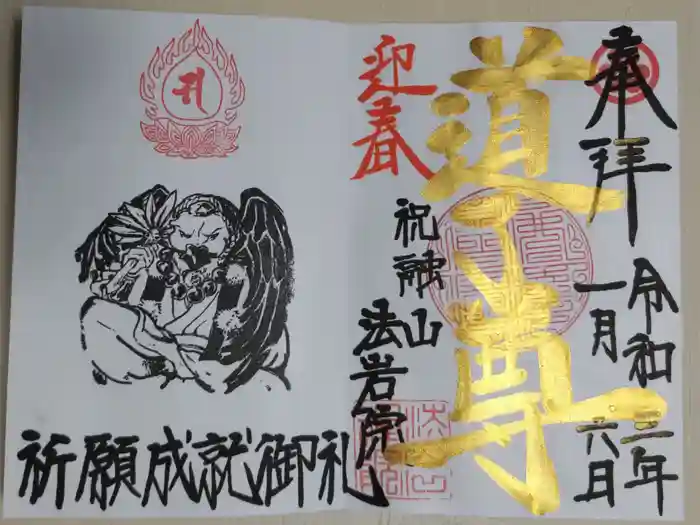 奉拝
令和二年
一月六日
道了尊
迎春
祝融山
法岩院
祈願成就御礼